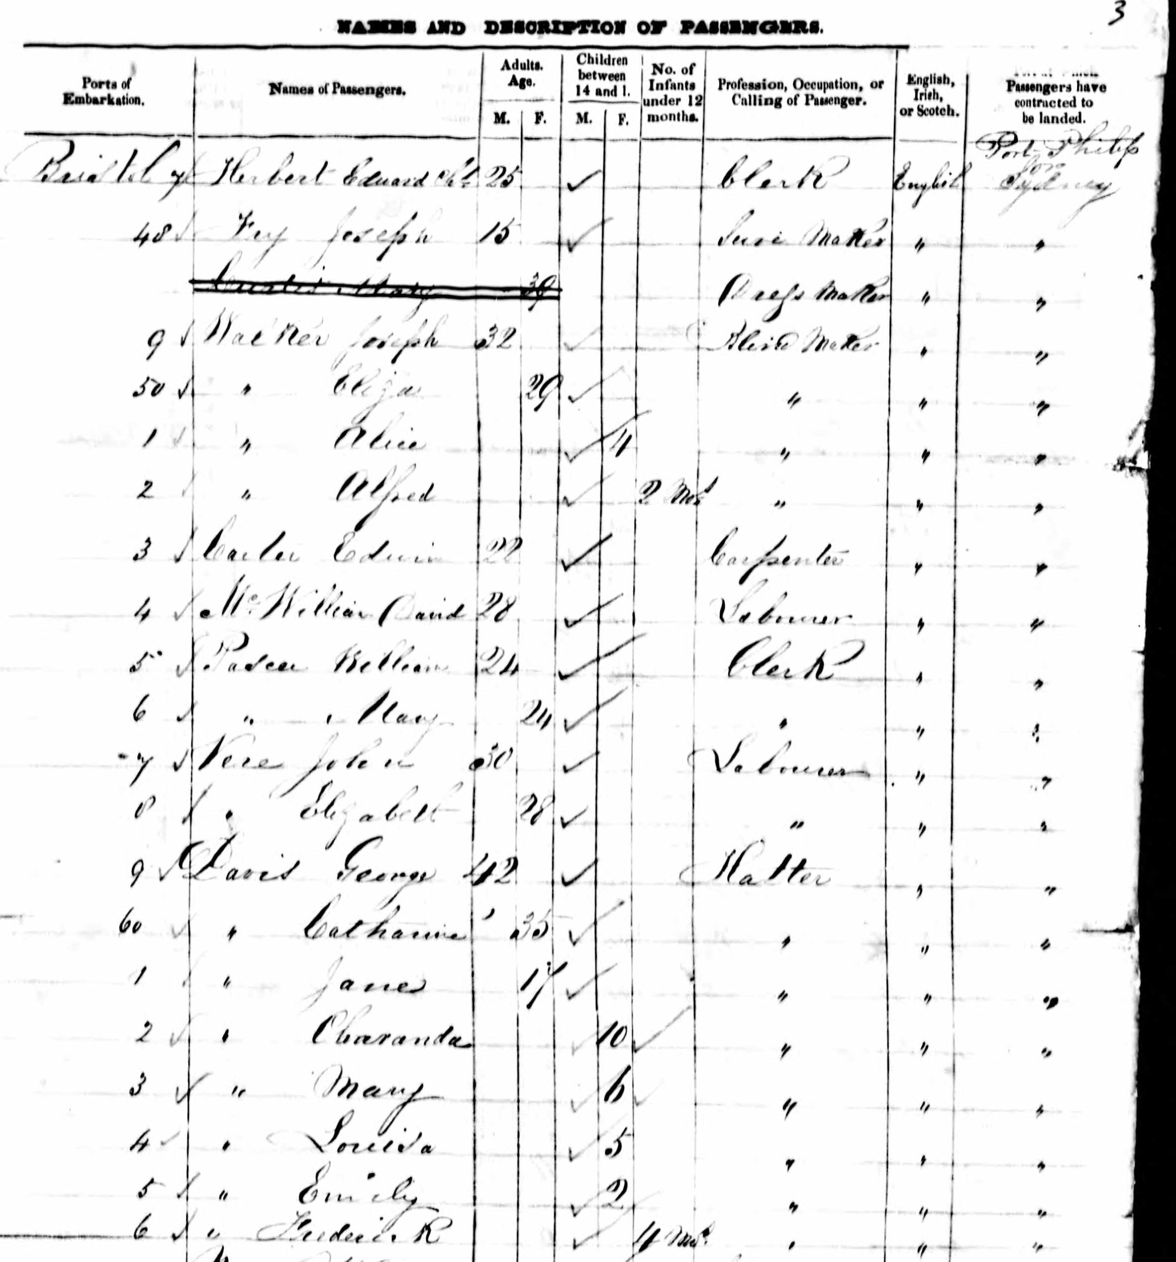 3
NAMES AND DESCRIPTION OF PASSENGERS.
Ports of Embarkation. Names of Passengers. Adults. Age. M. F. Children between 14 and 1. M. F. No. of Infants under 12 months. Profession, Occupation, or Calling of Passenger. English, Irish, or Scotch. Passengers have contracted to be landed.
Port Philip
or
Bristol 7 Herbert Eduard Chs 25 Clerk English Sydney
48 Fry Joseph 15 Maker " "
Curtis Mary 39 Dress Maker " "
9 Walker Joseph 32 Blind Maker " "
50 " Eliza 29 " " "
1 " Alice 4 " " "
2 " Alfred 2 Mos " " "
3 Carter Edwin 22 Carpenter " "
4 McWilliam David 28 Labourer " "
5 William 24 Clerk " "
6 " Mary 24 " " "
7 Vere John 30 Labourer " "
8 " Elizabeth 28 " " "
9 Davis George 42 Hatter " "
60 " Catharine 35 " " "
1 " Jane 17 " " "
2 " Charanda 10 " " "
3 " Mary 6 " " "
4 " Louisa 5 " " "
5 " Emily 2 " " "
6 " Frederick 4 Mos " " "